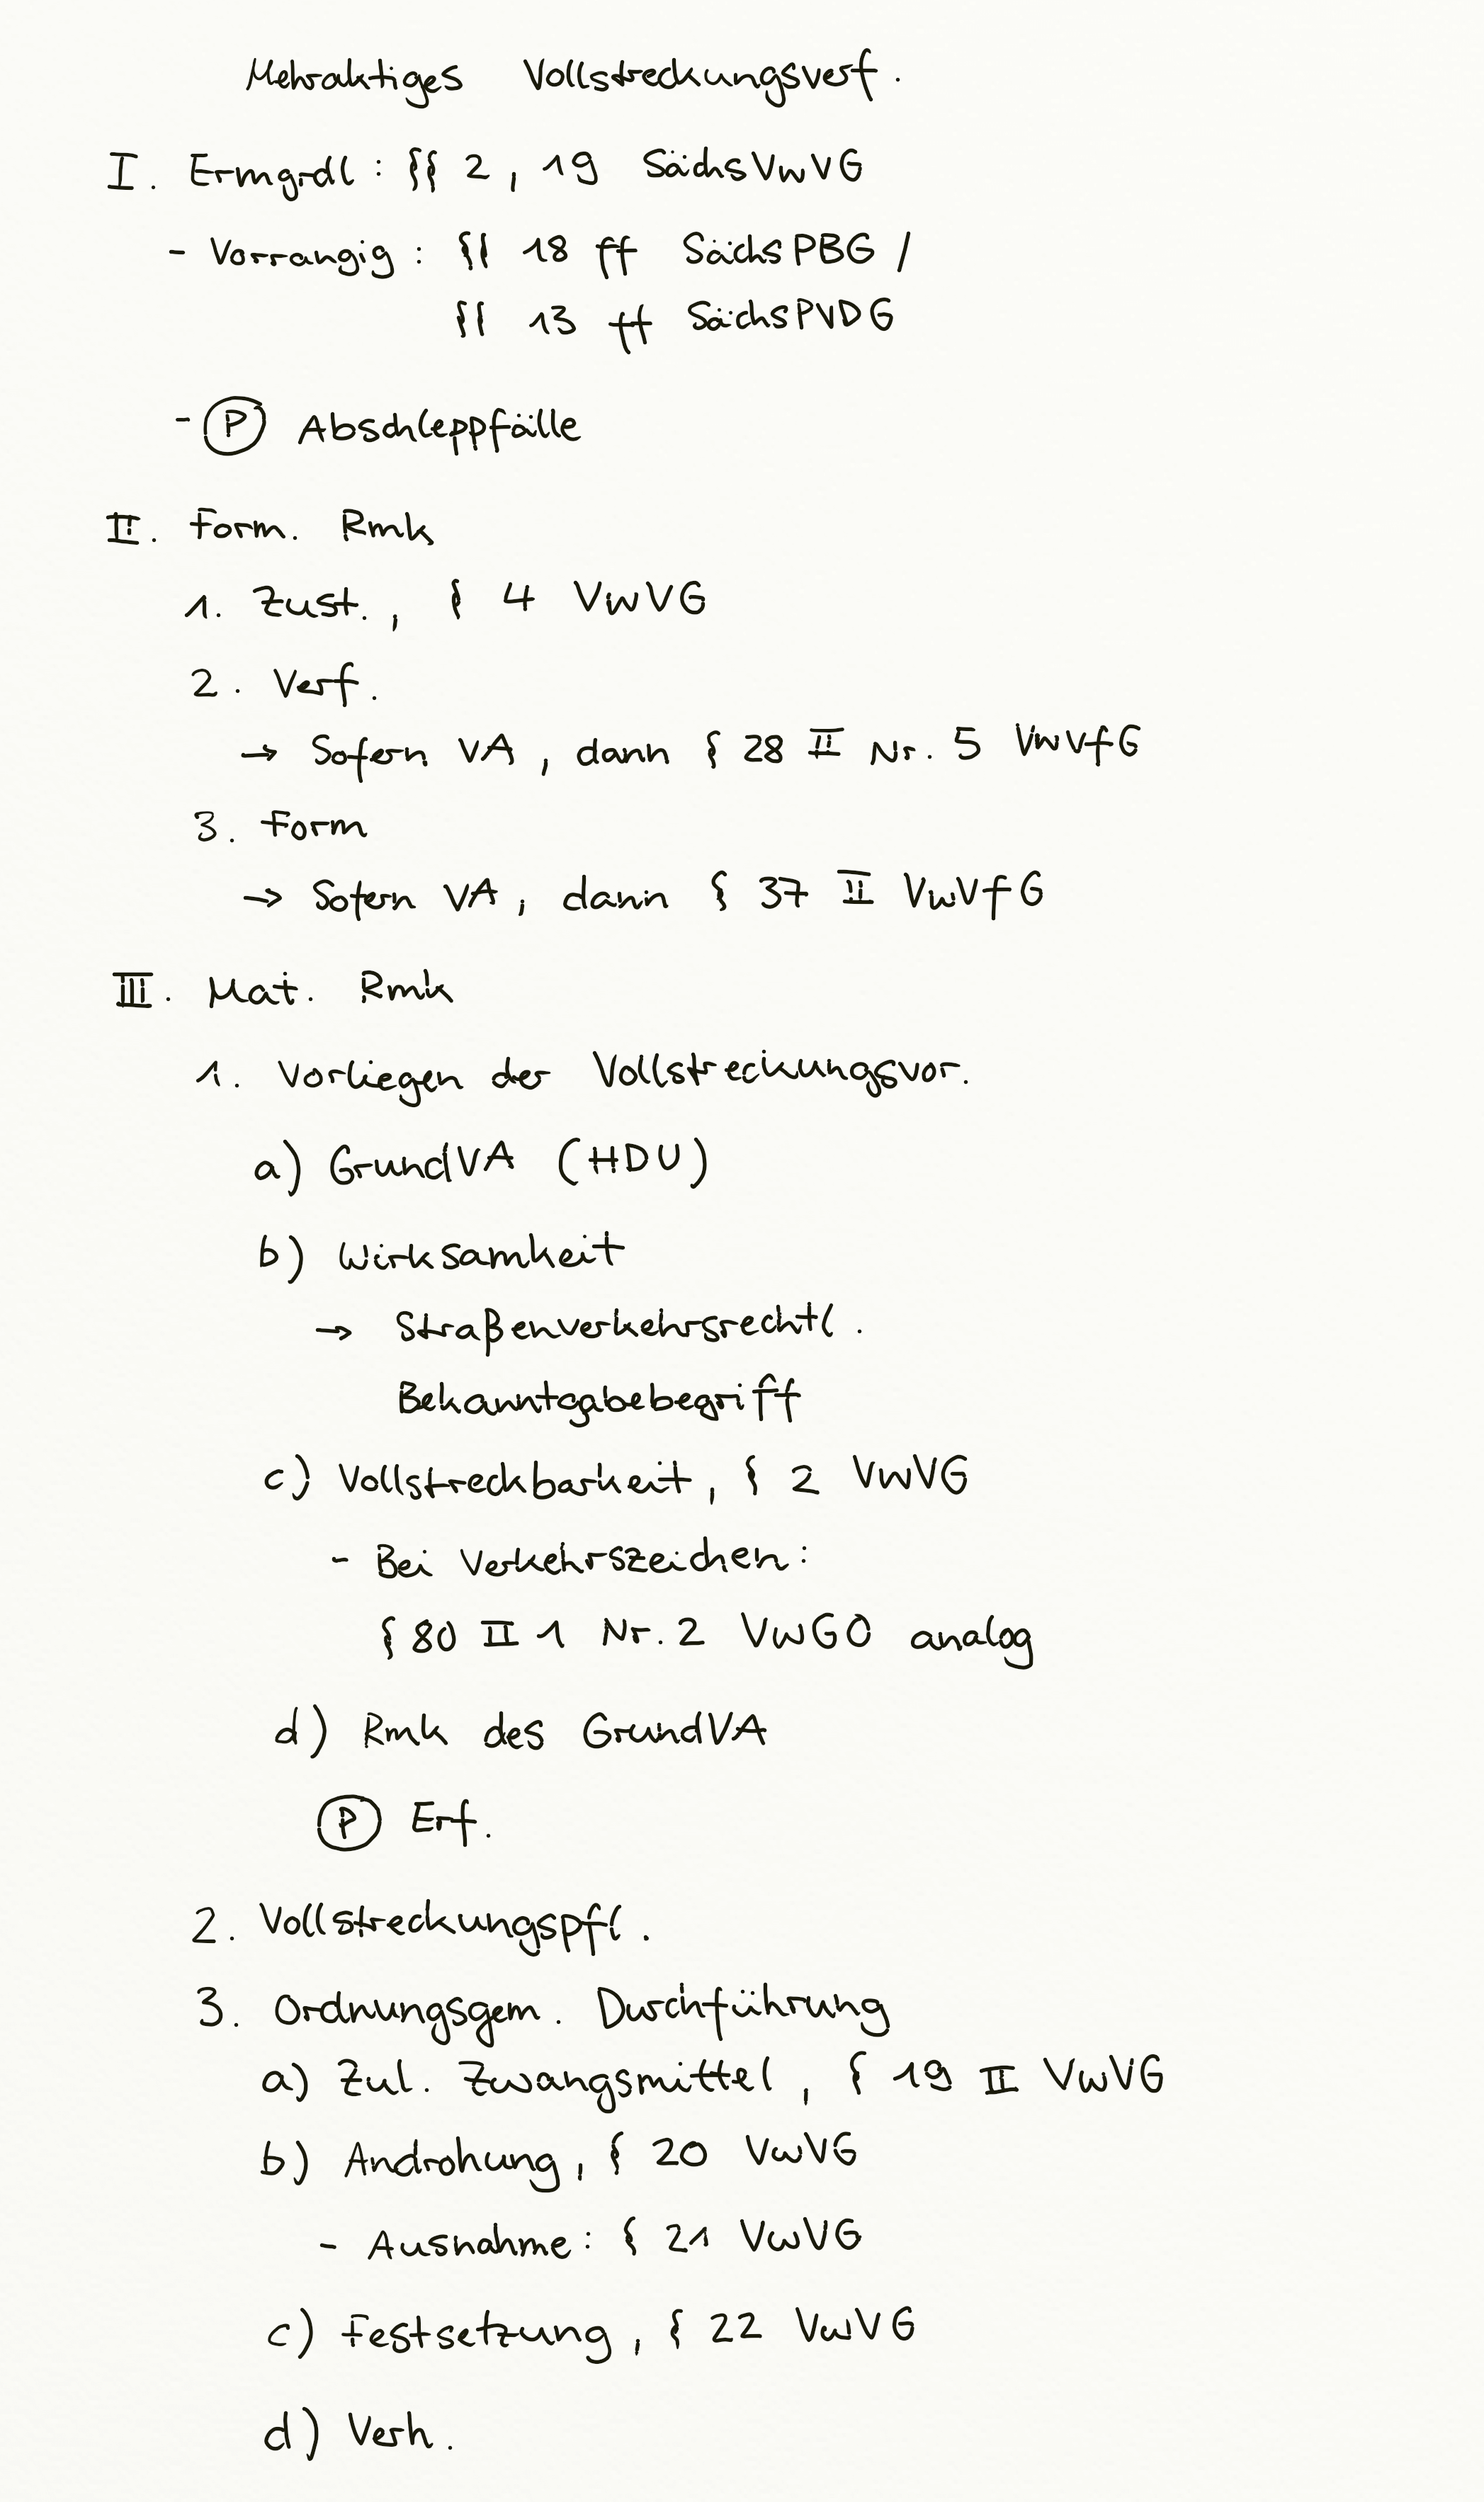 Mehraktiges Vollstreckungsverf.
I. Ermgrdl : §§ 2, 19 SächsVwVG
- Vorrangig : §§ 18 ff SächsPBG /
§§ 13 ff SächsPVDG
- P Abschleppfälle
II. Form. Rmk
1. Zust., § 4 VwVG
2. Verf.
→ Sofern VA, dann § 28 II Nr. 5 VwVfG
3. Form
→ Sofern VA, dann § 37 II VwVfG
III. Mat. Rmk
1. Vorliegen der Vollstreckungsvor.
a) GrundVA (HDU)
b) Wirksamkeit
→ Straßenverkehrsrechtl.
Bekanntgabebegriff
c) Vollstreckbarkeit, § 2 VwVG
- Bei Verkehrszeichen:
§ 80 II 1 Nr. 2 VwGO analog
d) Rmk des GrundVA
P Erf.
2. Vollstreckungspfl.
3. Ordnungsgem. Durchführung
a) Zul. Zwangsmittel, § 19 II VwVG
b) Androhung, § 20 VwVG
- Ausnahme: § 21 VwVG
c) Festsetzung, § 22 VwVG
d) Verh.